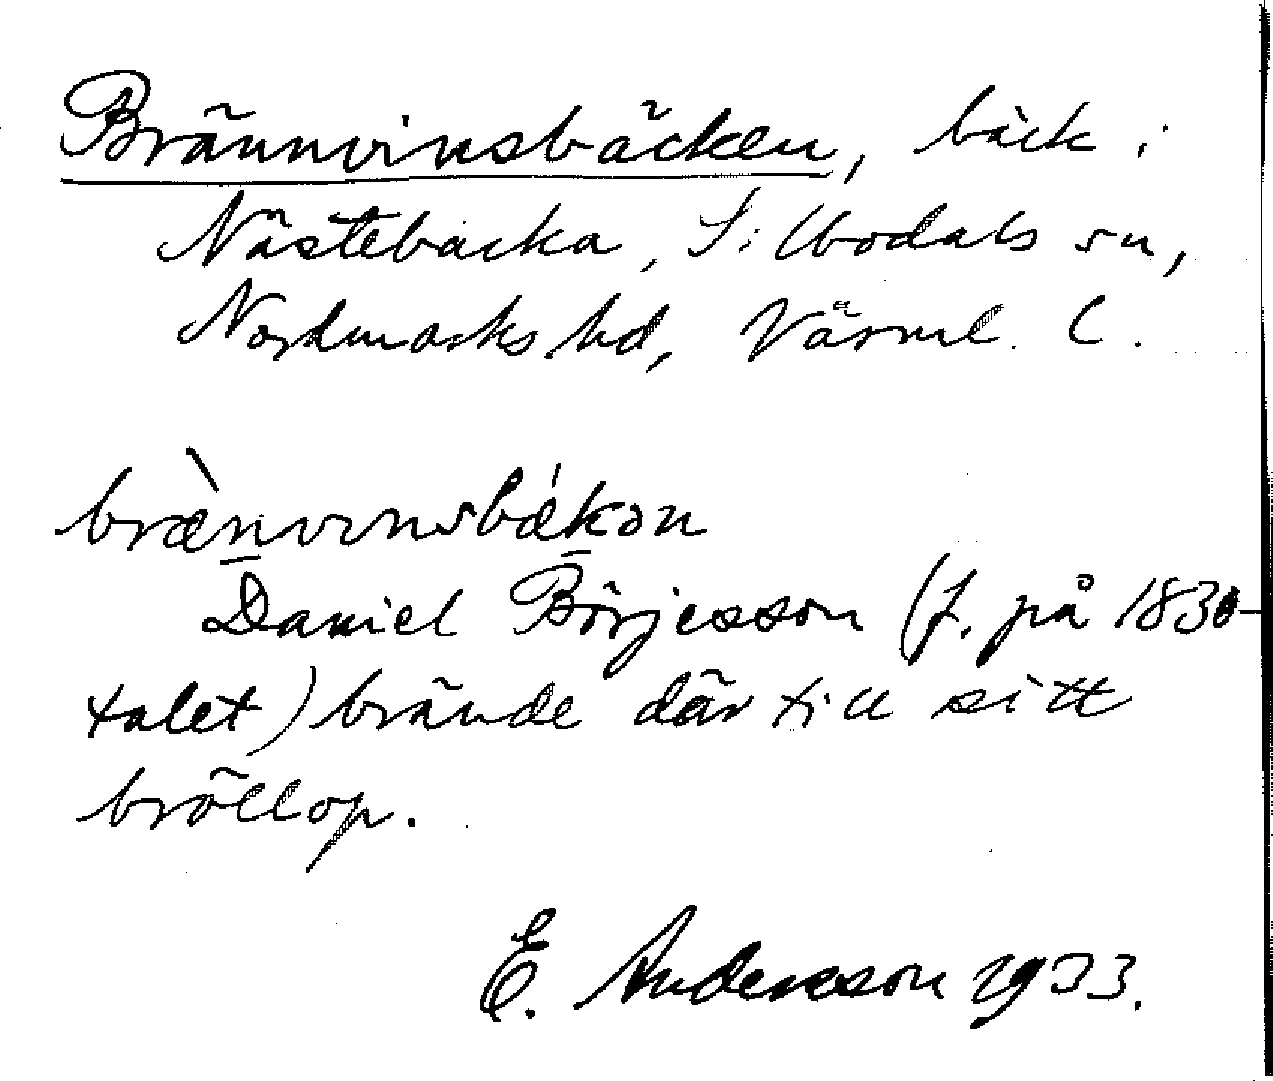 Brännvinsbäcken, bäck i
Nästebacka, Silbodals sn,
Nordmarks hd, Värml. l.
bræ̀nvinsbǽkən
Daniel Börjesson (f. på 1830-
talet) brände där till sitt
bröllop.
E. Andersson 1933.